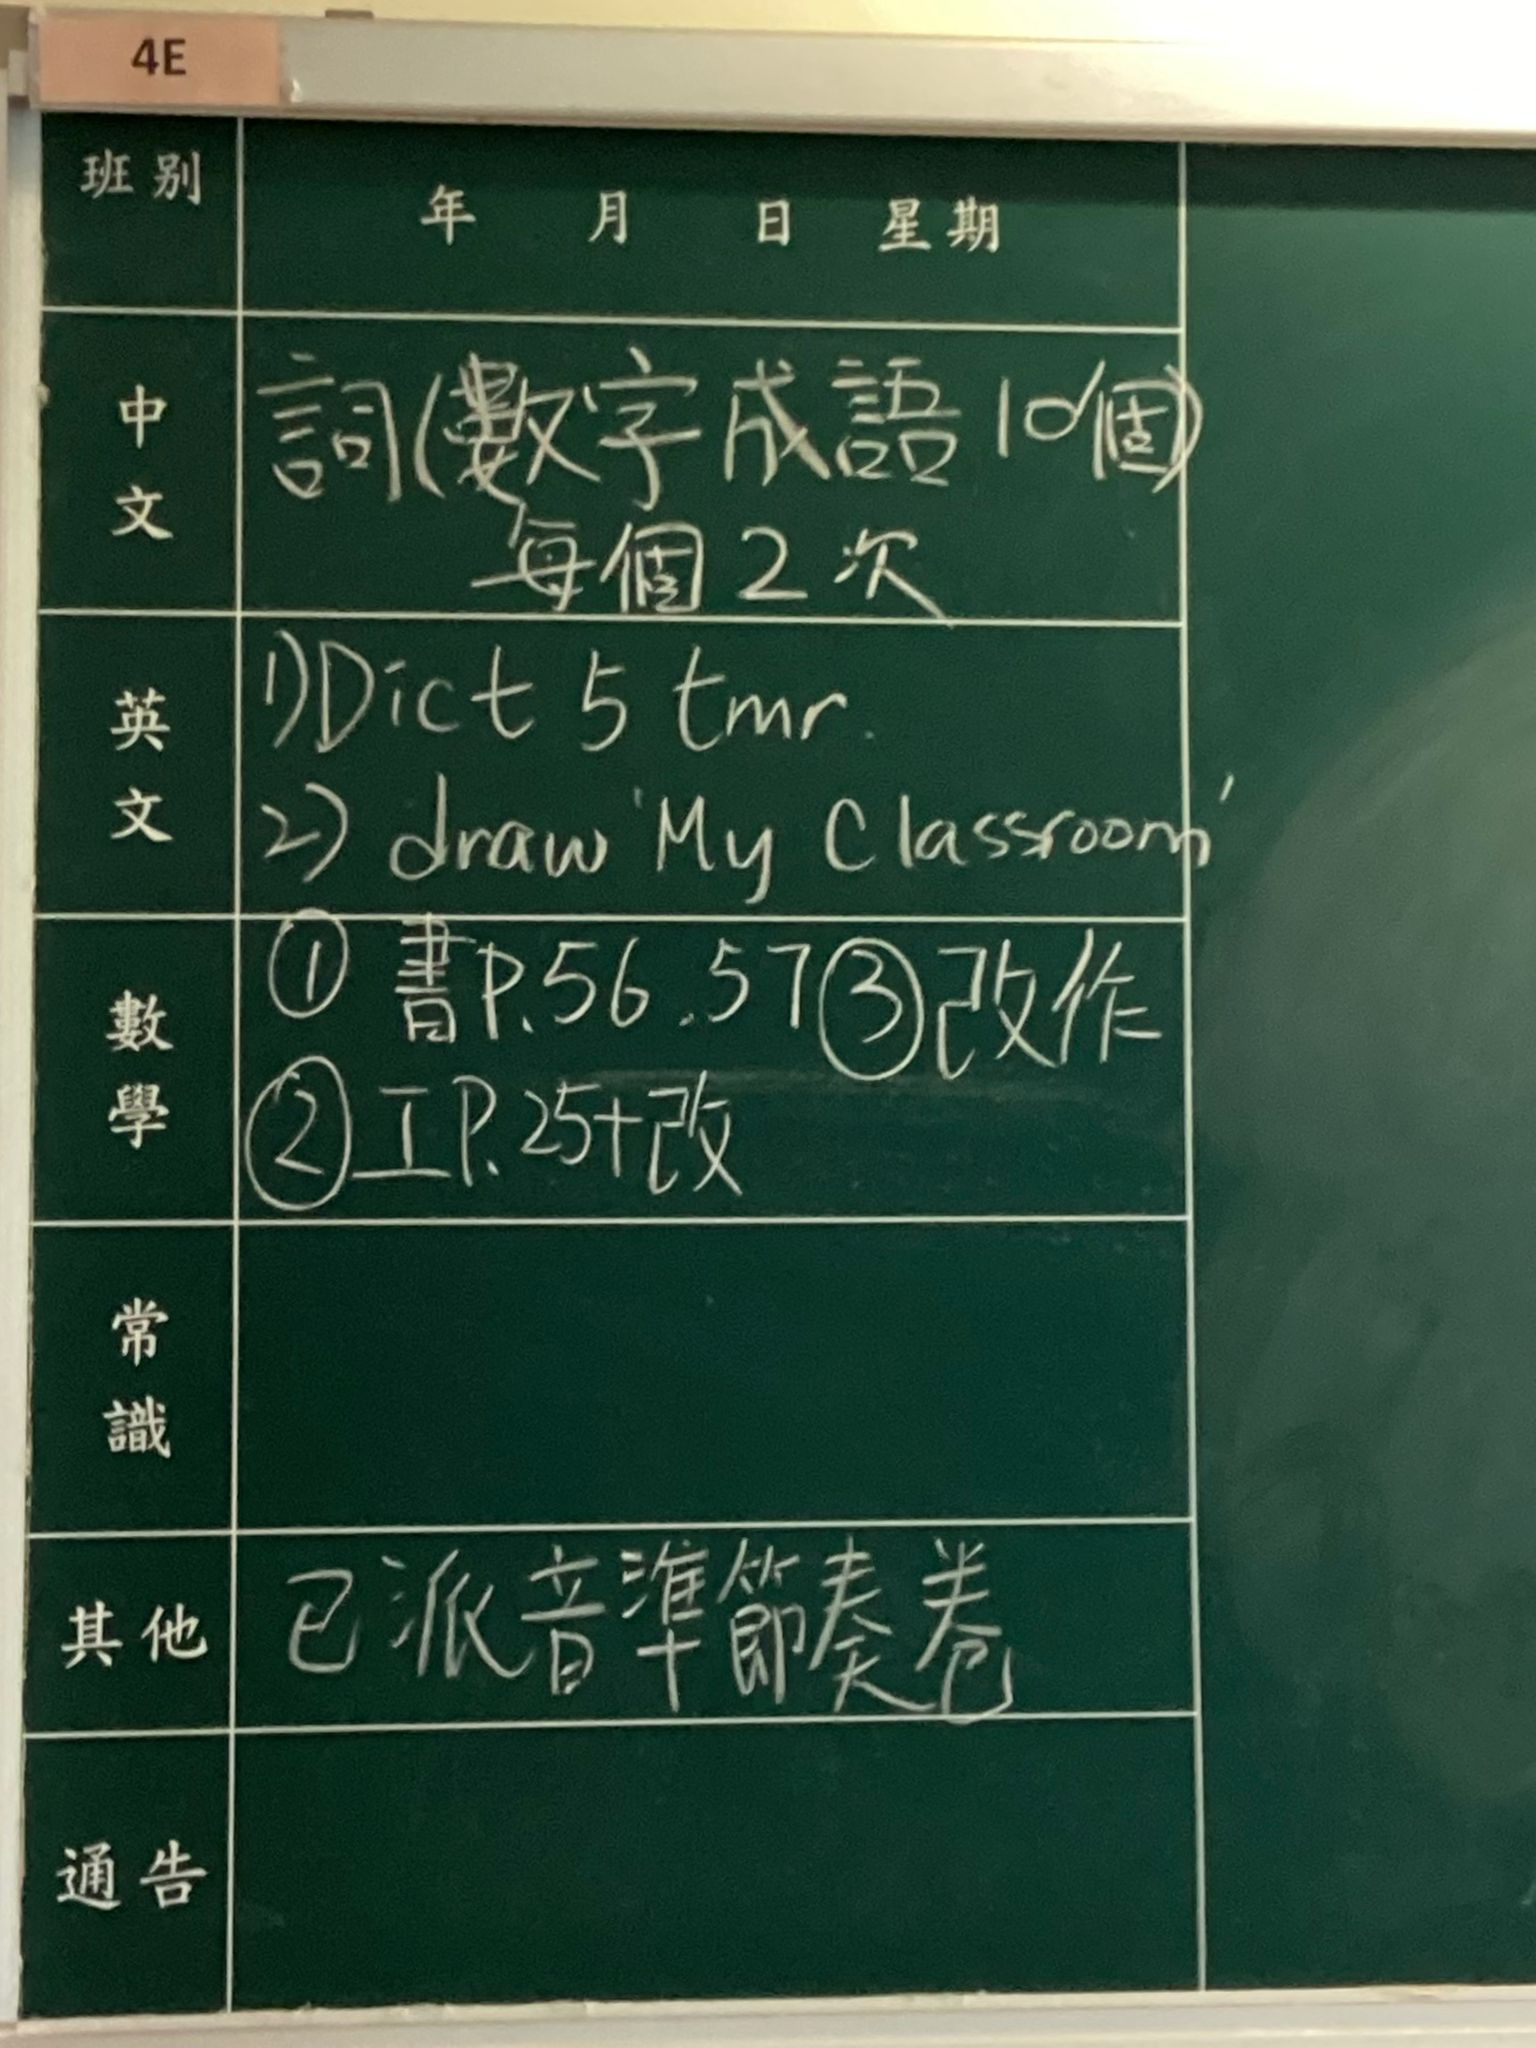 4E
班別
年 月 日 星期
中文
詞(數字成語10個)
每個2次
英文
1)Dict 5 tmr.
2) draw 'My Classroom'
數學
① 書P.56.57③改作
②工P.25+改
常識
其他
已派音準節奏卷
通告